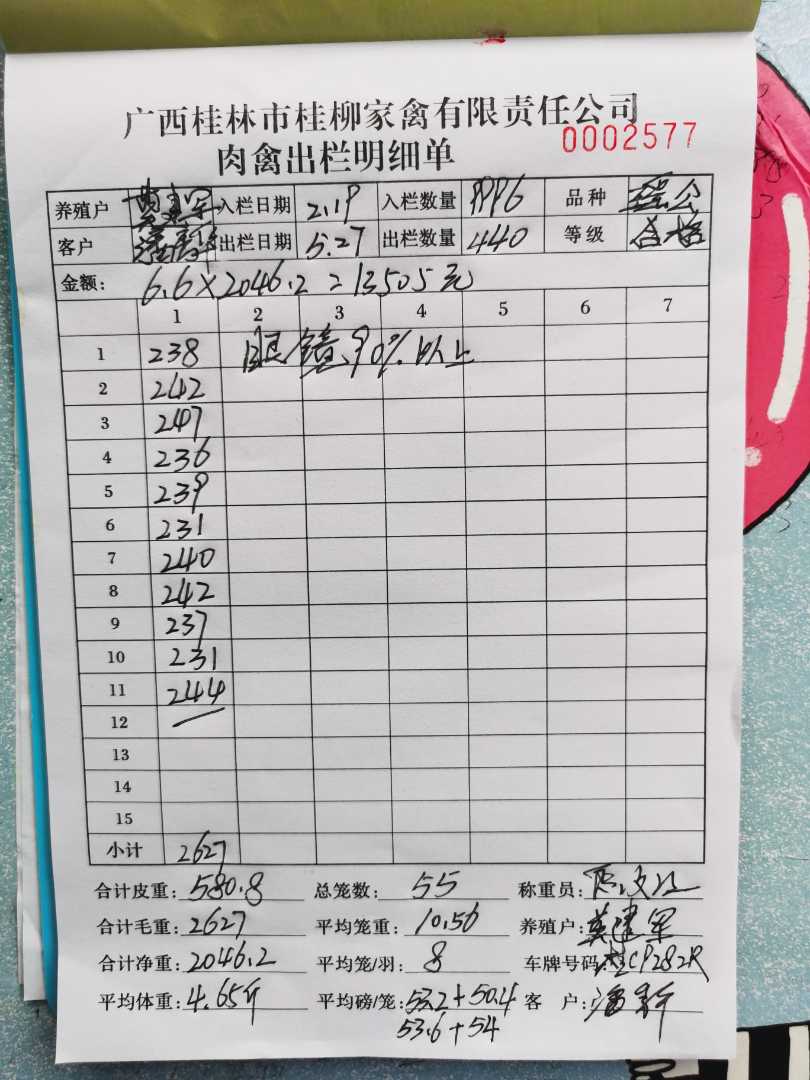 广西桂林市桂柳家禽有限责任公司
肉禽出栏明细单 0002577
养殖户 入栏日期 2.19 入栏数量 9996 品种 瑶公
客户 出栏日期 5.27 出栏数量 440 等级 合格
金额: 6.6×2046.2=13505元
1 2 3 4 5 6 7
1 238 眼镜、90%以上
2 242
3 247
4 236
5 239
6 231
7 240
8 242
9 237
10 231
11 244
12
13
14
15
小计 2627
合计皮重: 580.8 总笼数: 55 称重员:
合计毛重: 2627 平均笼重: 10.56 养殖户: 建军
合计净重: 2046.2 平均笼/羽: 8 车牌号码: 桂CP282R
平均体重: 4.65斤 平均磅/笼: 53.2+50.4 客 户: 潘
53.6+54